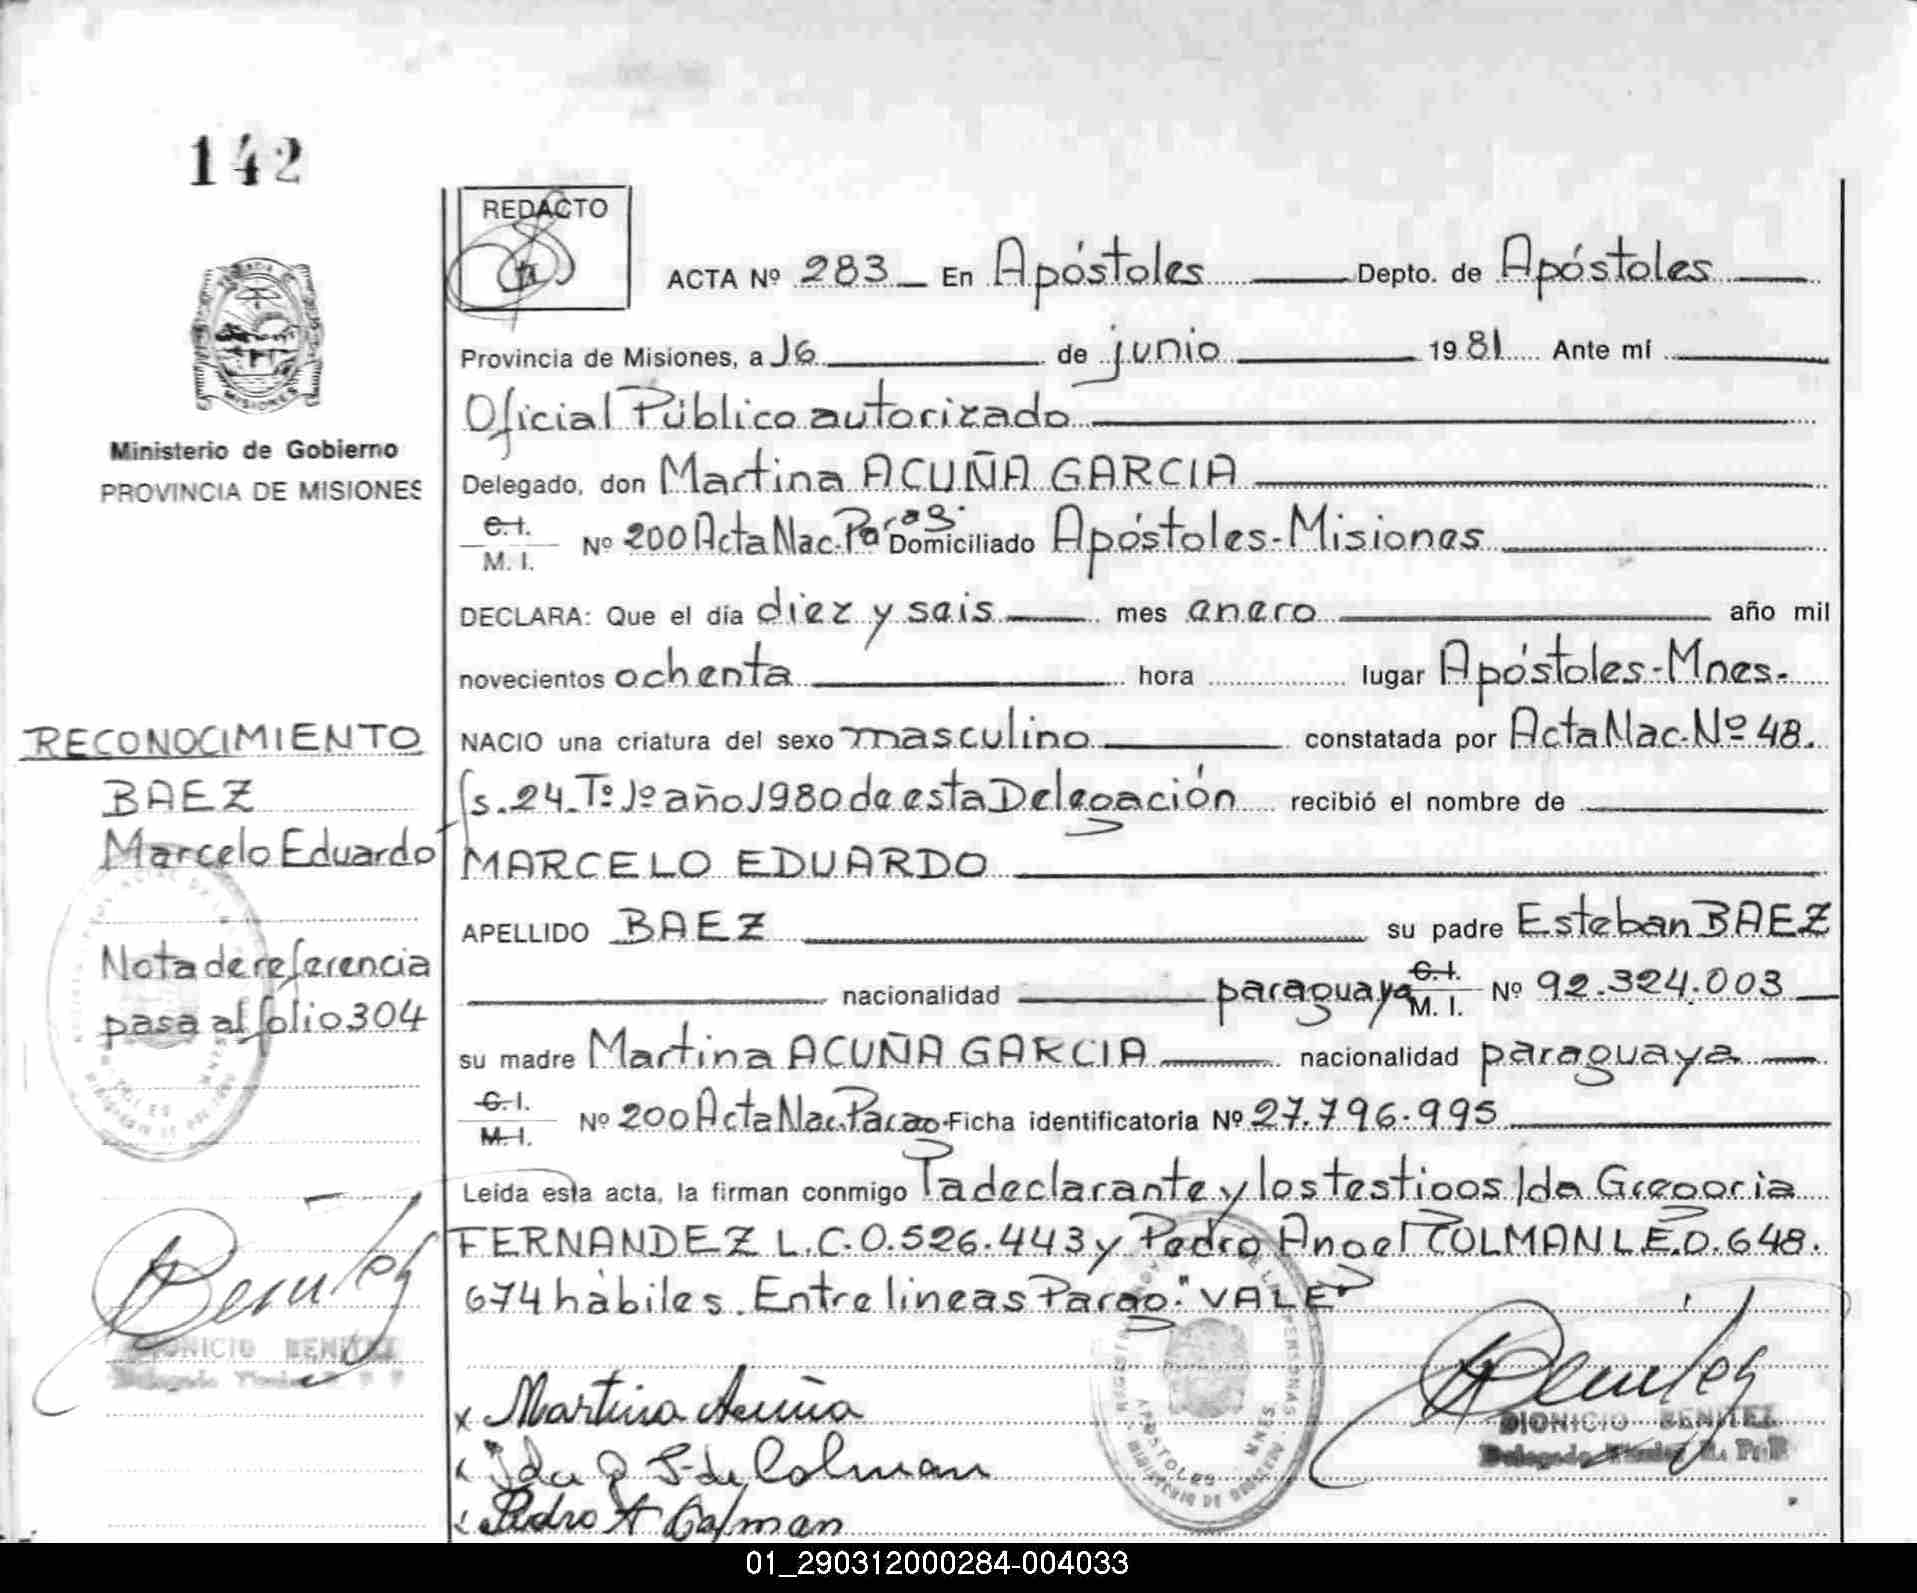 142
REDACTO
ACTA Nº 283 En Apóstoles Depto. de Apóstoles
Provincia de Misiones, a 16 de junio 1981 Ante mi
Oficial Público autorizado
Ministerio de Gobierno
PROVINCIA DE MISIONES
Delegado, don Martina ACUÑA GARCIA
C.I.
M. I.
Nº 200 Acta Nac. Parag. Domiciliado Apóstoles-Misiones
DECLARA: Que el día diez y seis mes enero año mil
novecientos ochenta hora lugar Apóstoles-Mnes.
RECONOCIMIENTO
NACIO una criatura del sexo masculino constatada por Acta Nac. Nº 48.
BAEZ
fs. 24. Tº 1º año 1980 de esta Delegación recibió el nombre de
Marcelo Eduardo
MARCELO EDUARDO
APELLIDO BAEZ su padre Esteban BAEZ
Nota de referencia
pasa al folio 304
nacionalidad paraguaya C.I. M. I. Nº 92.324.003
su madre Martina ACUÑA GARCIA nacionalidad paraguaya
C.I.
M.I.
Nº 200 Acta Nac. Parag. Ficha identificatoria Nº 27.796.995
Leída esta acta, la firman conmigo la declarante y los testigos Ida Gregoria
FERNANDEZ L.C.0.526.443 y Pedro Angel COLMAN L.E.0.648.
674 hábiles. Entre lineas Parag." VALE"
Benítez
DIONICIO BENITEZ
x Martina Acuña
Benítez
DIONICIO BENITEZ
Ida G F. de Colman
Pedro A Colman
APOSTOLES MNES.
01_290312000284-004033